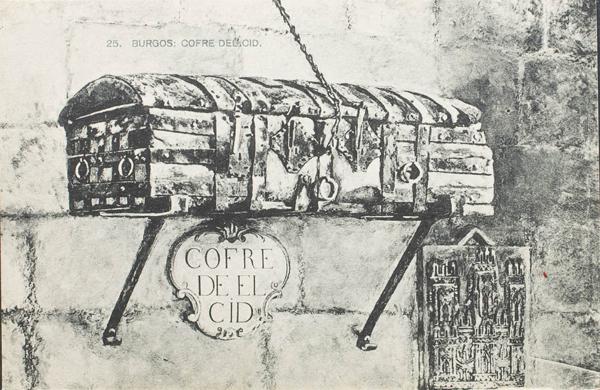 25. BURGOS: COFRE DEL CID.
COFRE
DE EL
CID